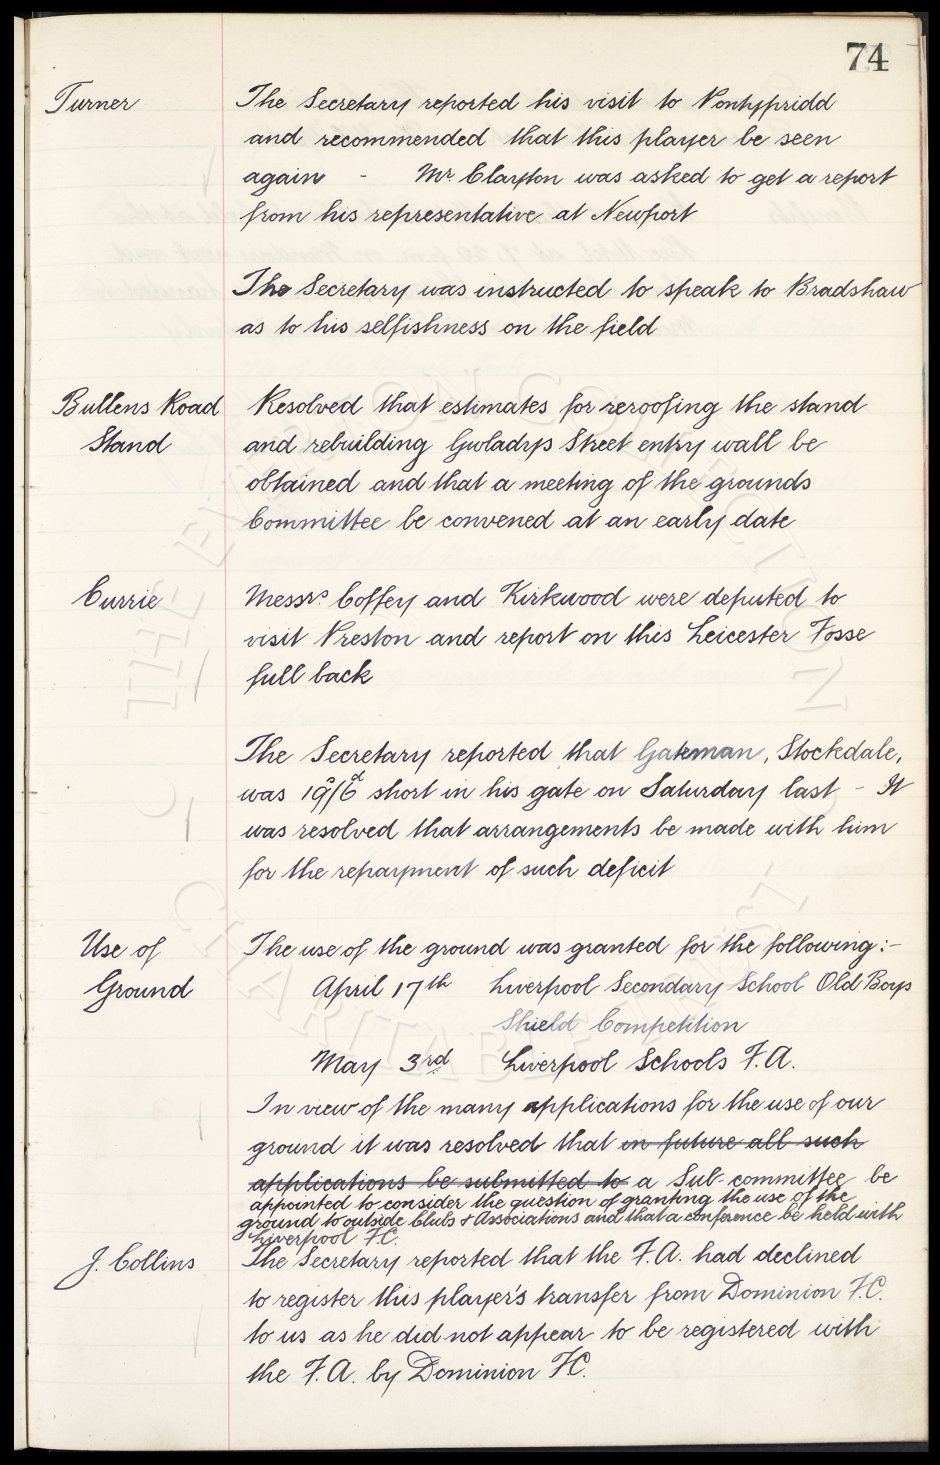 74
Turner The Secretary reported his visit to Pontypridd
and recommended that this player be seen
again - Mr. Clayton was asked to get a report
from his representative at Newport
The Secretary was instructed to speak to Bradshaw
as to his selfishness on the field
Bullens Road Resolved that estimates for reroofing the stand
Stand and rebuilding Gwladys Street entry wall be
obtained and that a meeting of the grounds
Committee be convened at an early date
Currie Messrs. Coffey and Kirkwood were deputed to
visit Preston and report on this Leicester Fosse
full back
The Secretary reported that Gateman, Stockdale,
was 19s/6d short in his gate on Saturday last - It
was resolved that arrangements be made with him
for the repayment of such deficit
Use of The use of the ground was granted for the following:-
Ground April 17th Liverpool Secondary School Old Boys
Shield Competition
May 3rd Liverpool Schools F.A.
In view of the many applications for the use of our
ground it was resolved that in future all such
applications be submitted to a Sub-committee be
appointed to consider the question of granting the use of the
ground to outside Clubs & Associations and that a conference be held with
Liverpool F.C.
J. Collins The Secretary reported that the F.A. had declined
to register this player's transfer from Dominion F.C.
to us as he did not appear to be registered with
the F.A. by Dominion F.C.